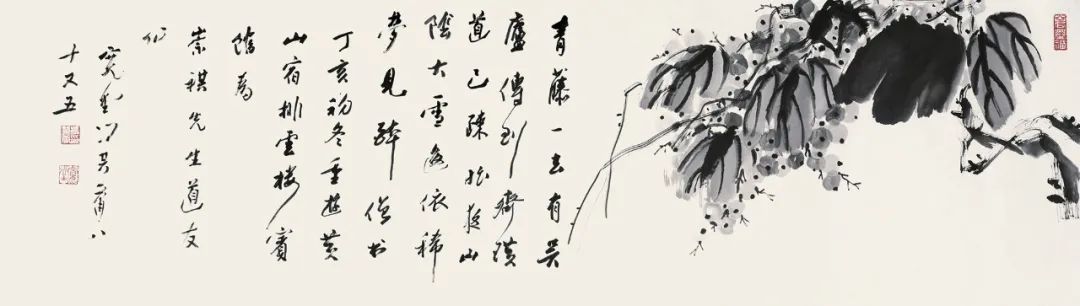 青藤一去有吴
廬傳到齊璜
道已疎昨夜山
陰大雪依稀
夢見醉僧书
丁亥初冬重遊黄
山宿排雲樓賓
館為
崇祺先生道友
作
寬堂馮其庸八
十又五